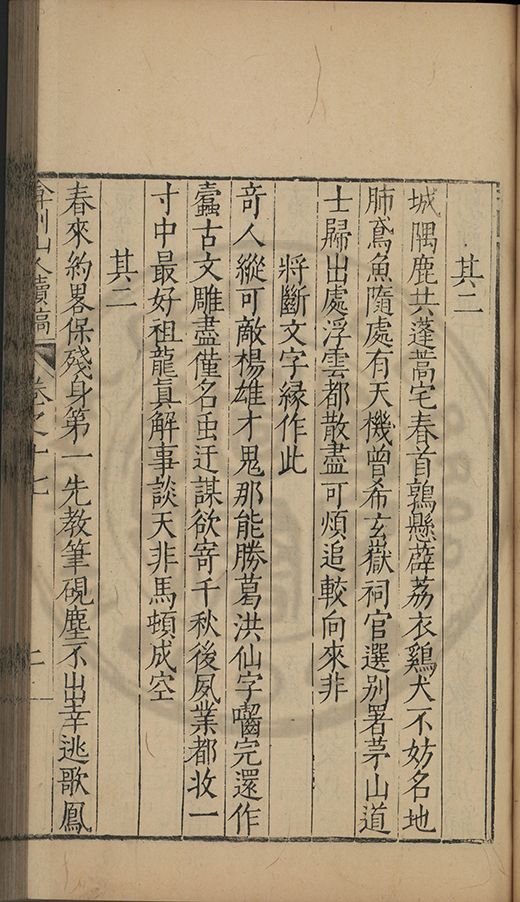 其二
城隅鹿共蓬蒿宅春首鶉懸薜荔衣鷄犬不妨名地
肺鳶魚隨處有天機曾希玄嶽祠官選別署茅山道
士歸出處浮雲都散盡可煩追較向來非
將斷文字緣作此
竒人縱可敵楊雄才鬼那能勝葛洪仙字囓完還作
蠧古文雕盡僅名虫迂謀欲寄千秋後夙業都收一
寸中最好祖龍眞解事談天非馬頓成空
其二
春來約畧保殘身第一先教筆硯塵不出幸逃歌鳳
弇州山人續稿
卷之十七